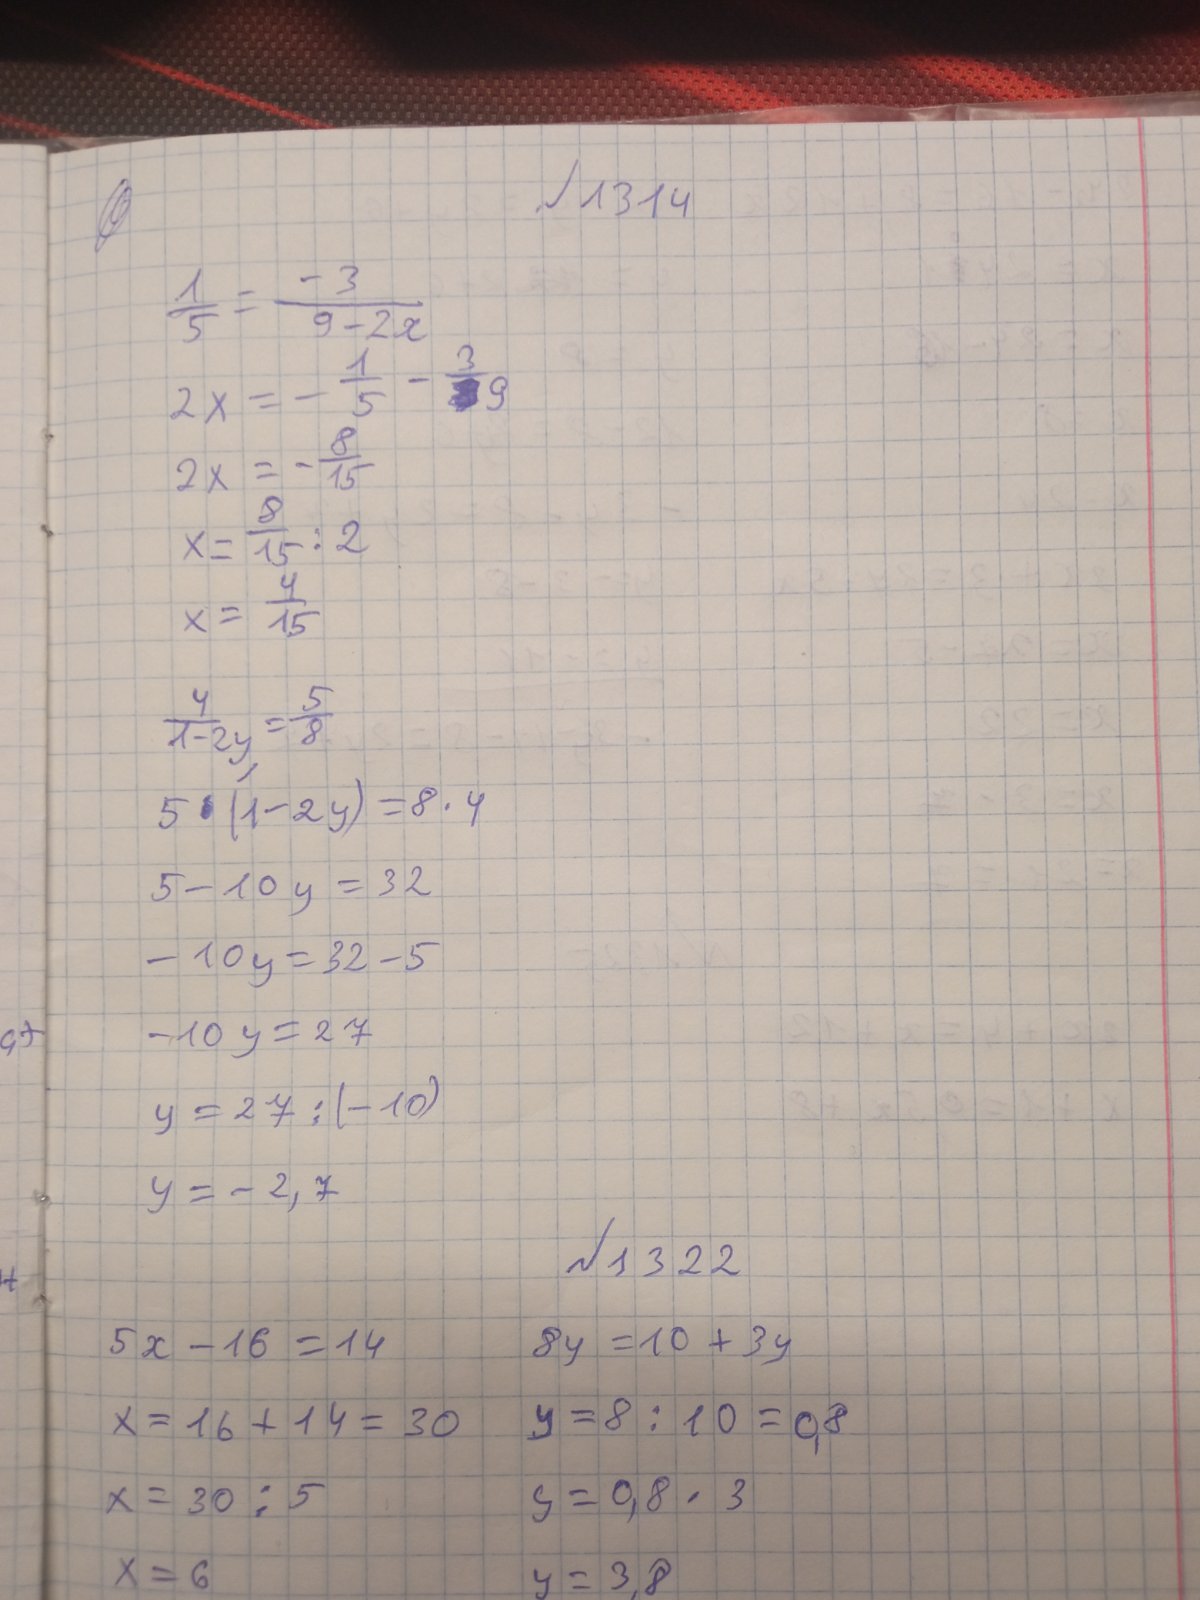 №1314
1/5 = -3/(9-2x)
2x = -1/5 - 3/9
2x = -8/15
x = 8/15 : 2
x = 4/15
4/(1-2y) = 5/8
5·(1-2y) = 8·4
5-10y = 32
-10y = 32-5
-10y = 27
y = 27:(-10)
y = -2,7
№1322
5x-16 = 14
x = 16+14 = 30
x = 30:5
x = 6
8y = 10+3y
y = 8:10 = 0,8
y = 0,8·3
y = 3,8